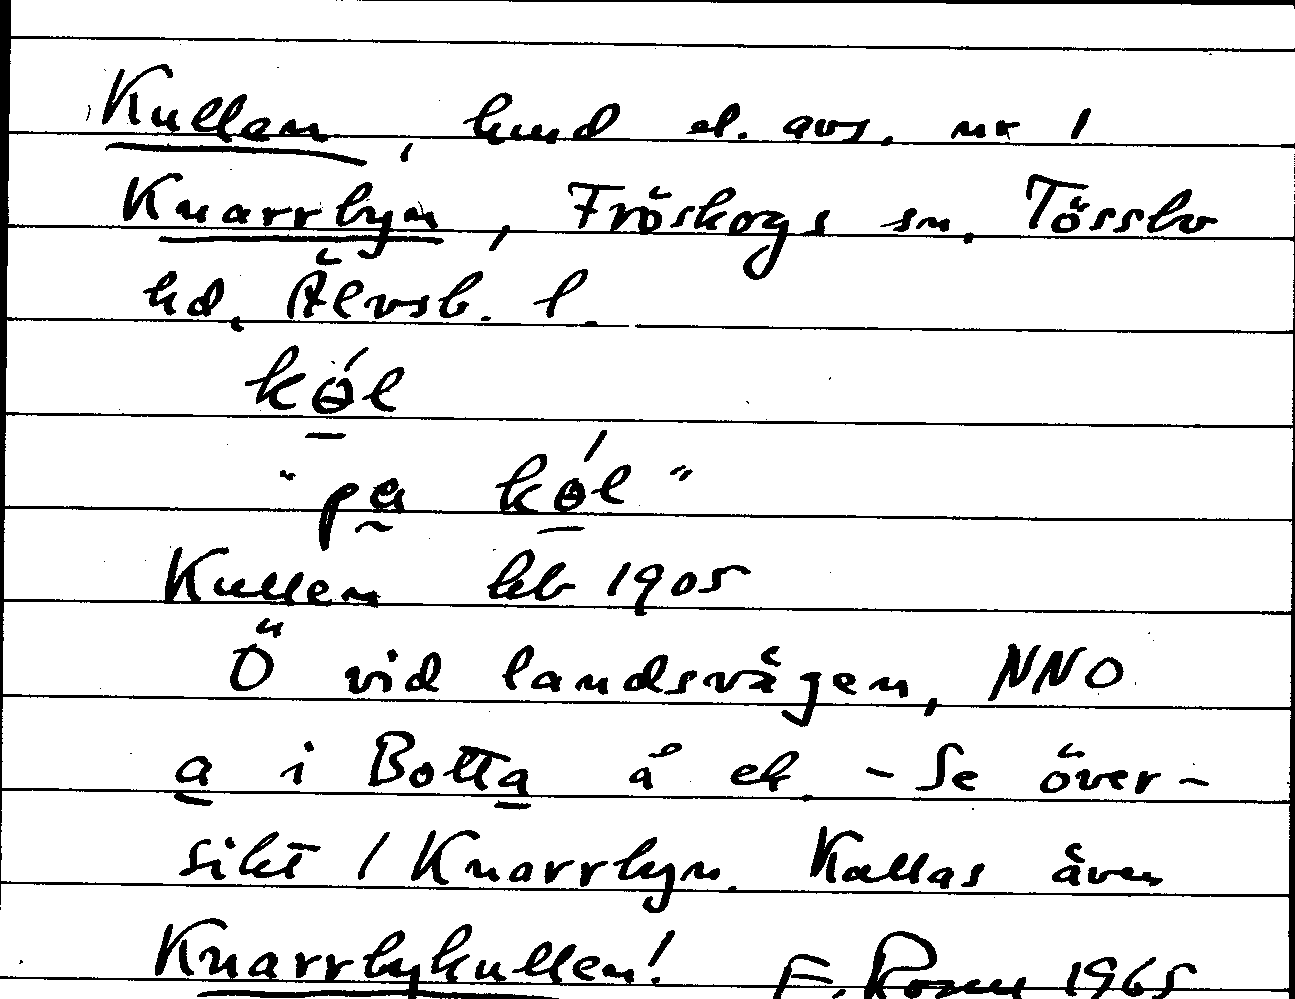 Kullen, hmd el. avs. nr 1
Knarrbyn, Fröskogs sn. Tössbo
hd. Älvsb. l.
kɵ́l
"pa kɵ́l"
Kullen kb 1905
Ö vid landsvägen, NNO
a i Botta å ek. - Se över-
sikt / Knarrbyn. Kallas även
Knarrbykullen! 1965